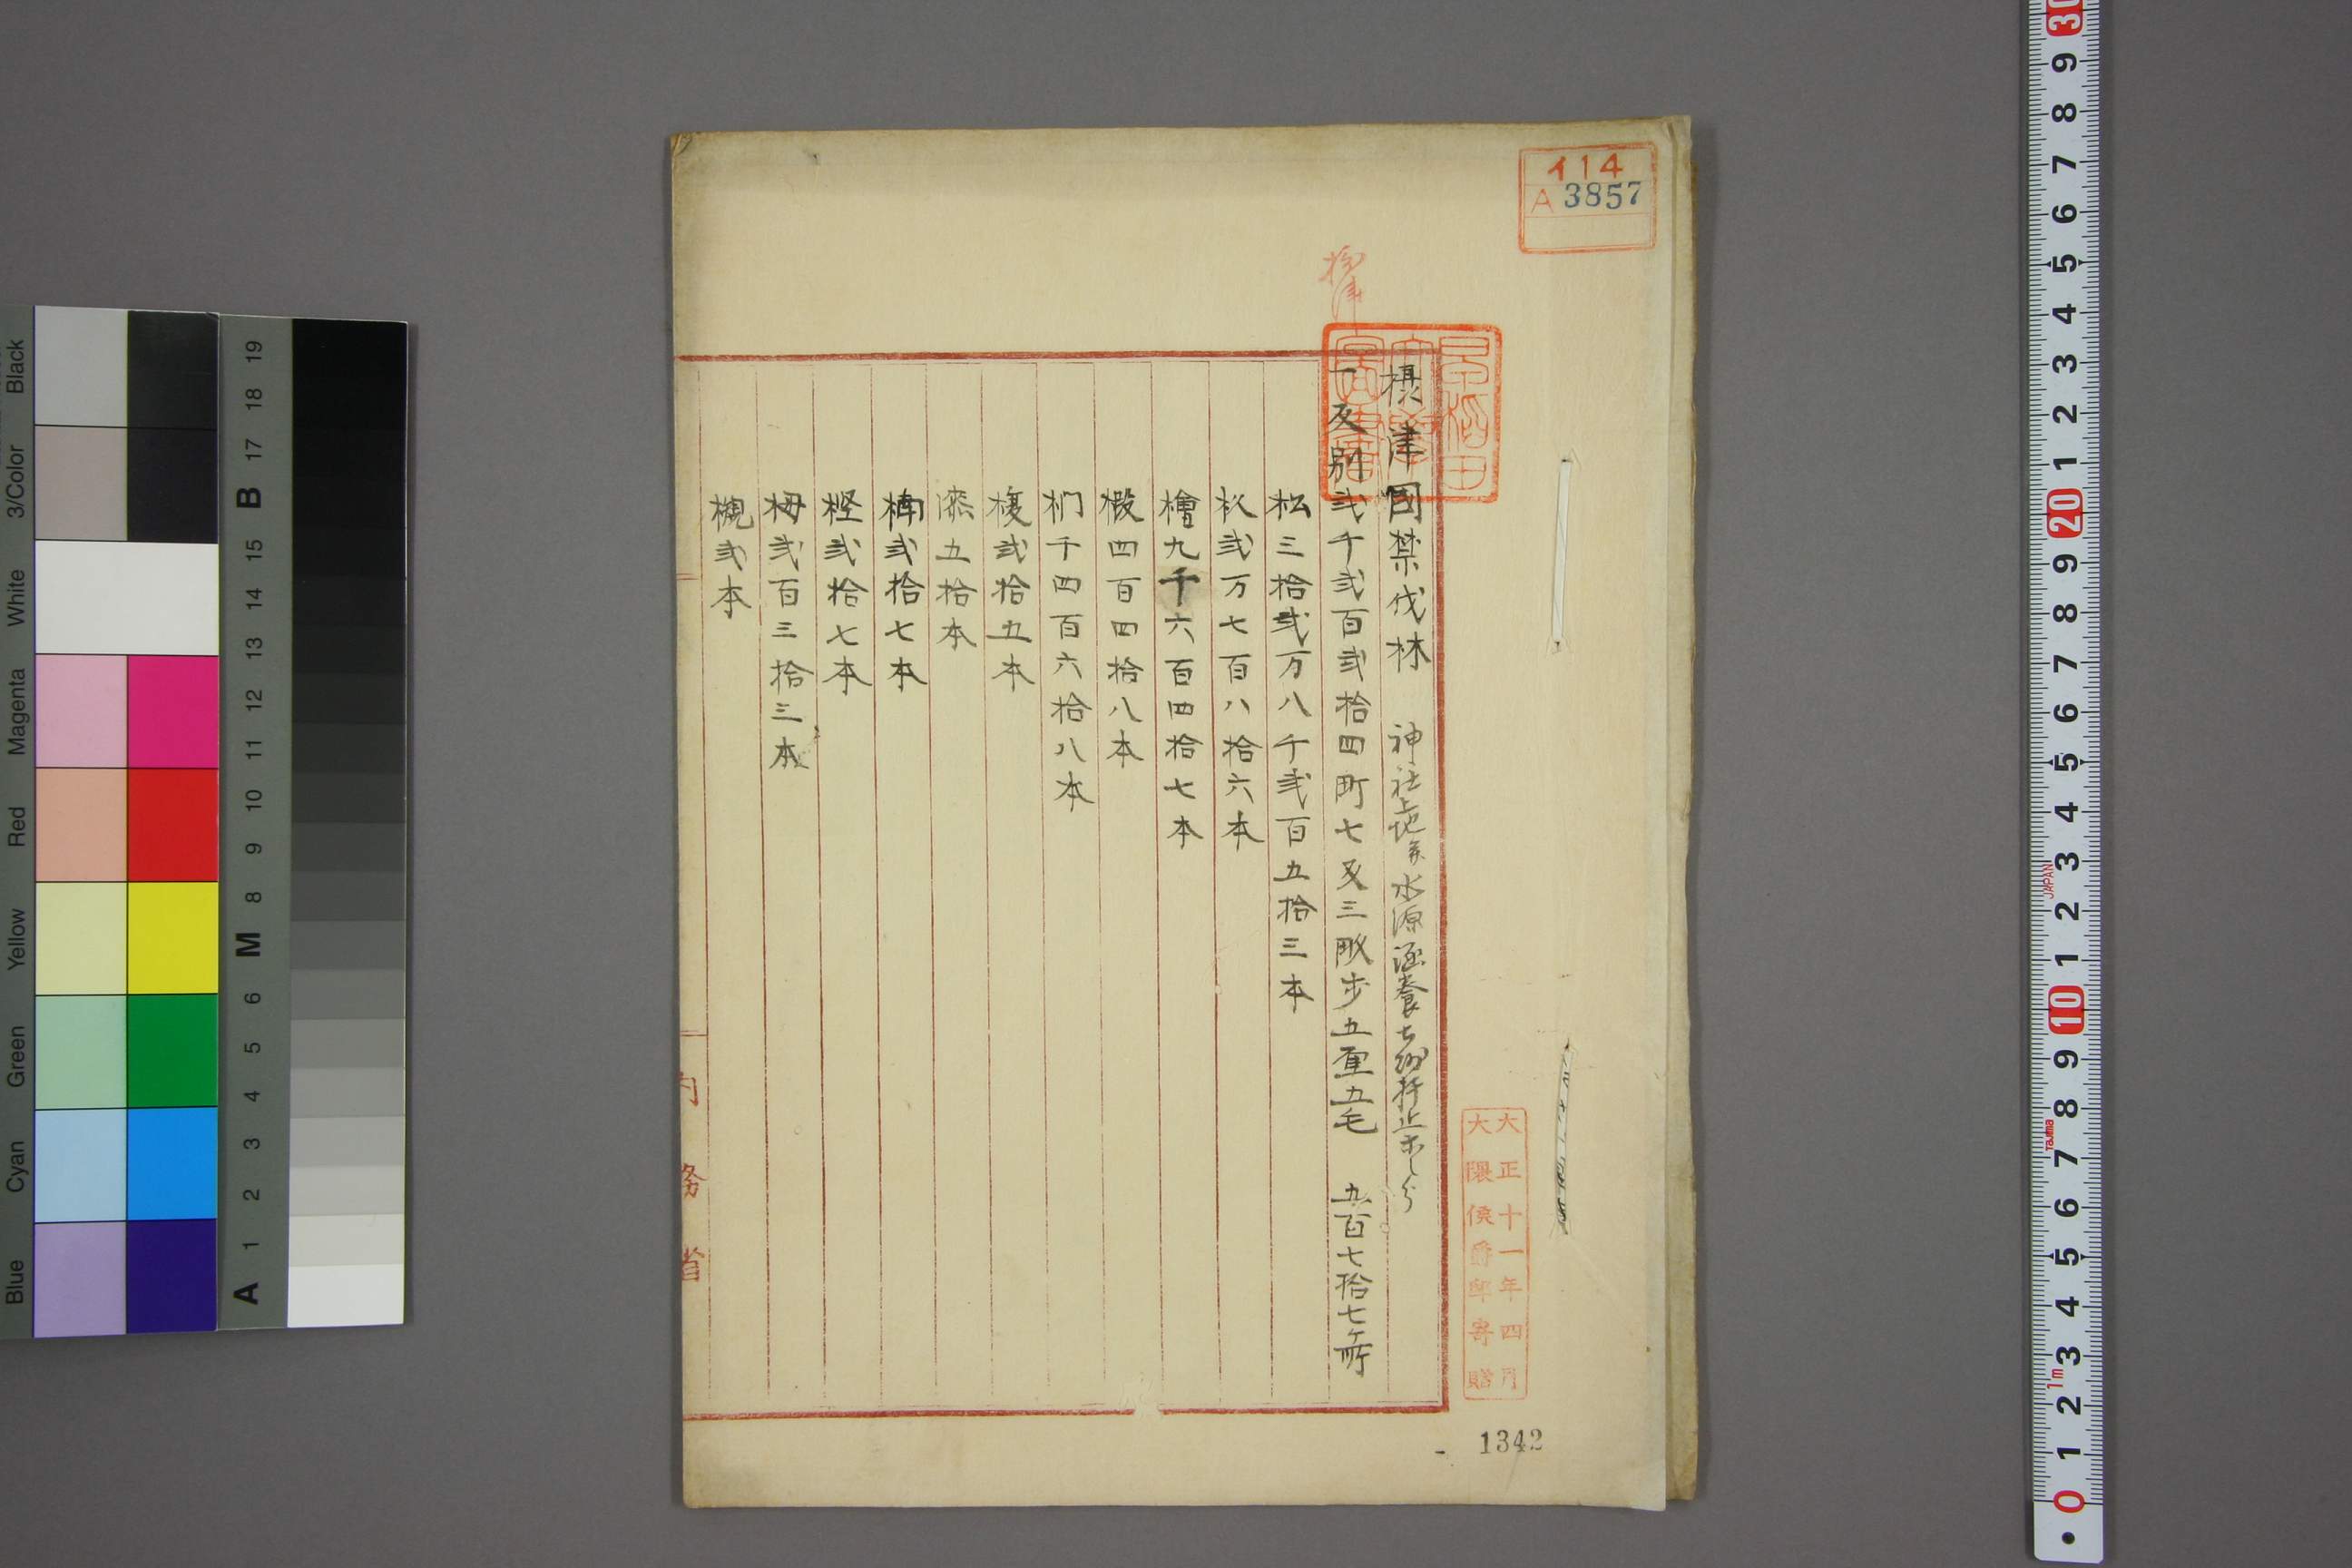 イ14
A 3857
摂津
摂津國禁伐林 神社上地 水源涵養土砂扞止等ノ分
一反別弐千弐百弐拾四町七反三畝歩五厘五毛 九百七拾七ヶ所
松三拾弐万八千弐百五拾三本
杦弐万七百八拾六本
檜九千六百四拾七本
椴四百四拾八本
杤千四百六拾八本
榎弐拾五本
漆五拾本
楠弐拾七本
樫弐拾七本
栂弐百三拾三本
槻弐本
内務省
早稲田
大學
圖書
大正十一年四月
大隈侯爵邸寄贈
1342
Black
3/Color
White
Magenta
Red
Yellow
Green
Cyan
Blue
19
18
17
B
16
15
14
13
12
11
10
9
8
M
7
6
5
4
3
2
1
A
30
9
8
7
6
5
4
3
2
1
20
9
8
7
6
5
4
3
2
1
10
9
8
7
6
5
4
3
2
1
0
JAPAN
Tajima
1m